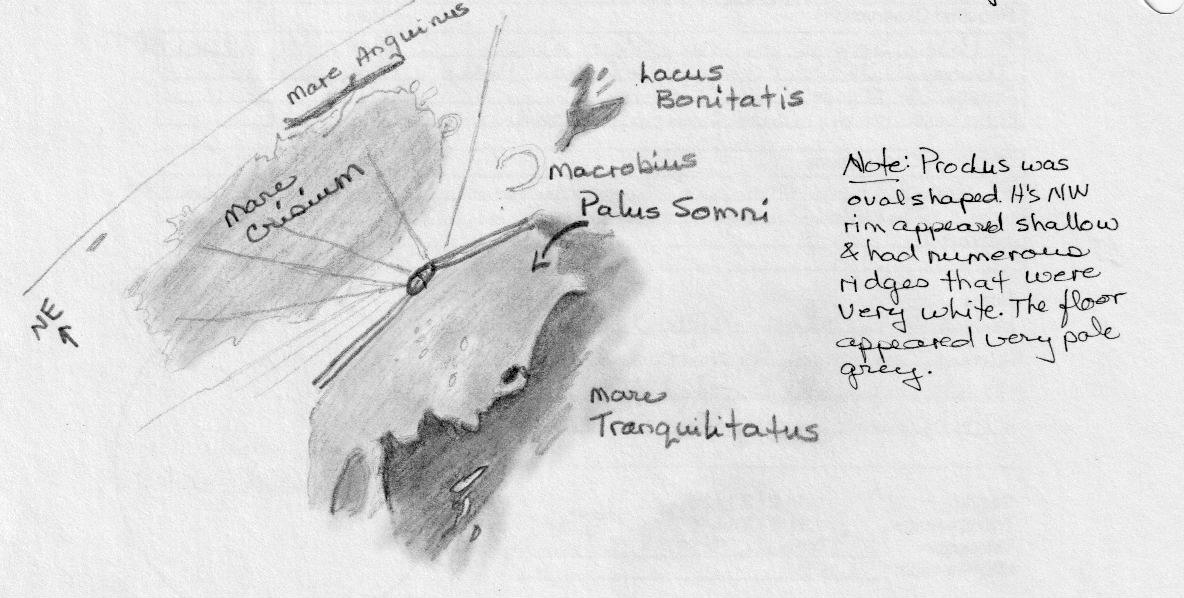 Mare Anguinus
Lacus
Bonitatis
Macrobius
Mare
Crisium
Palus Somni
NE
Mare
Tranquilitatus
Note: Proclus was
oval shaped. It's NW
rim appeared shallow
& had numerous
ridges that were
very white. The floor
appeared very pale
grey.